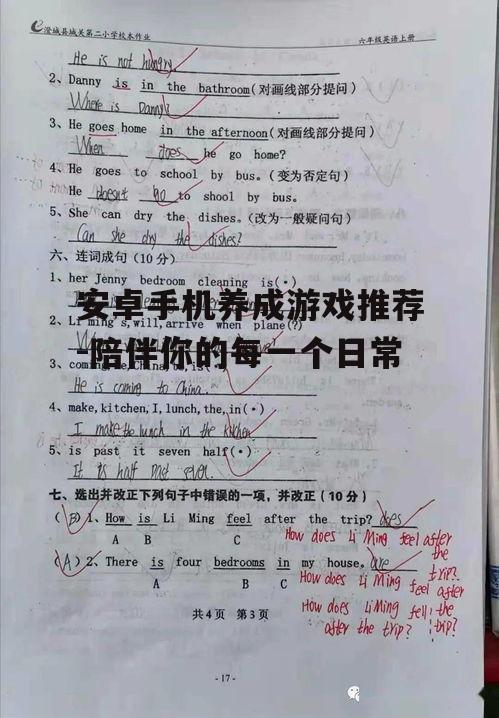 澄城县城关第二小学校本作业 六年级英语上册
He is not hungry
2、Danny is in the bathroom(对画线部分提问)
Where is Danny?
3、He goes home in the afternoon(对画线部分提问)
When does he go home?
4、He goes to school by bus。(变为否定句)
He doesn't go to shool by bus.
5、She can dry the dishes。(改为一般疑问句)
Can she dry the dishes?
六、连词成句(10分)
1、her Jenny bedroom cleaning is(•)
安卓手机养成游戏推荐
2、Li ming's,will,arrive when plane(?)
-陪伴你的每一个日常
3、
He is coming to China.
4、make,kitchen,I,lunch,the,in(•)
I make the lunch in the kitchen
5、is past it seven half(•)
It is half past seven.
七、选出并改正下列句子中错误的一项,并改正(10分)
(B)1、How is Li Ming feel after the trip? does
A B C
How does Li Ming feel after the trip?
(A)2、There is four bedrooms in my house。are
A B C
How does Li Ming feel after the trip?
How does Li Ming fell after the trip?
共4页 第3页
-17-